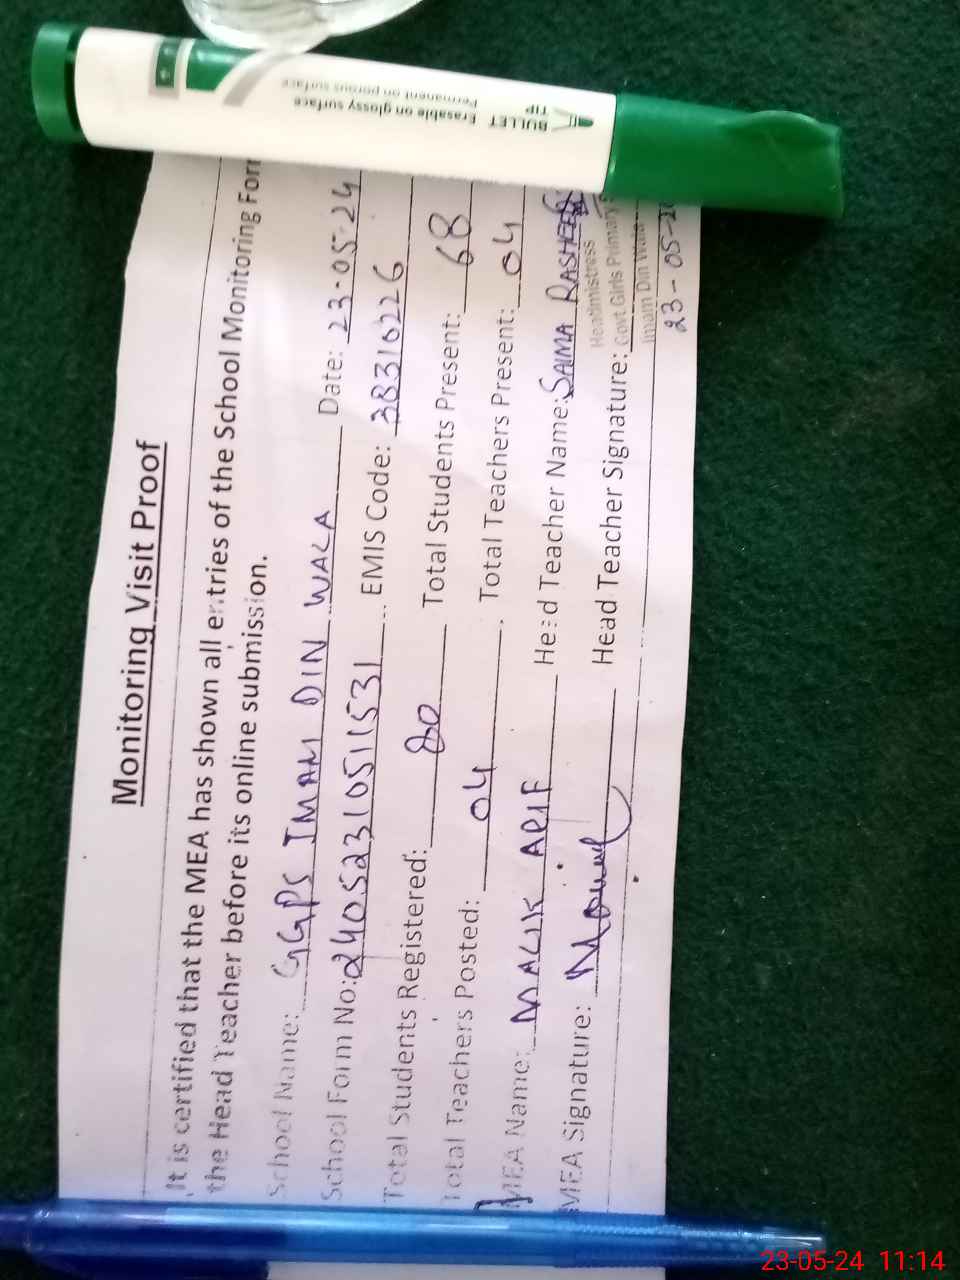 Monitoring Visit Proof
It is certified that the MEA has shown all entries of the School Monitoring Form
the Head Teacher before its online submission.
School Name: GGPS IMAM DIN WALA Date: 23-05-24
School Form No: 24052310511531 EMIS Code: 38310226
Total Students Registered: 80 Total Students Present: 68
Total Teachers Posted: 04 Total Teachers Present: 04
MEA Name: MALIK ARIF Head Teacher Name: SAIMA RASHEED
MEA Signature: Head Teacher Signature:
Headmistress
Govt Girls Primary
Imam Din Wala
23-05-2
BULLET TIP
Erasable on glossy surface
Permanent on porous surface
23-05-24 11:14